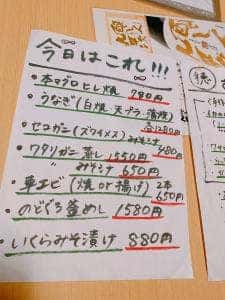 今日はこれ!!!
・本マグロヒレ焼 780円
・うなぎ(白焼 天プラ 蒲焼)
各1280円
・セコガニ(ズワイメス) みそ汁
480円
・ワタリガニ蒸し 1550円
〃 みそ汁 650円
・車エビ(焼 or 揚げ) 2本
650円
・のどぐろ釜めし 1580円
・いくらみそ漬け 880円